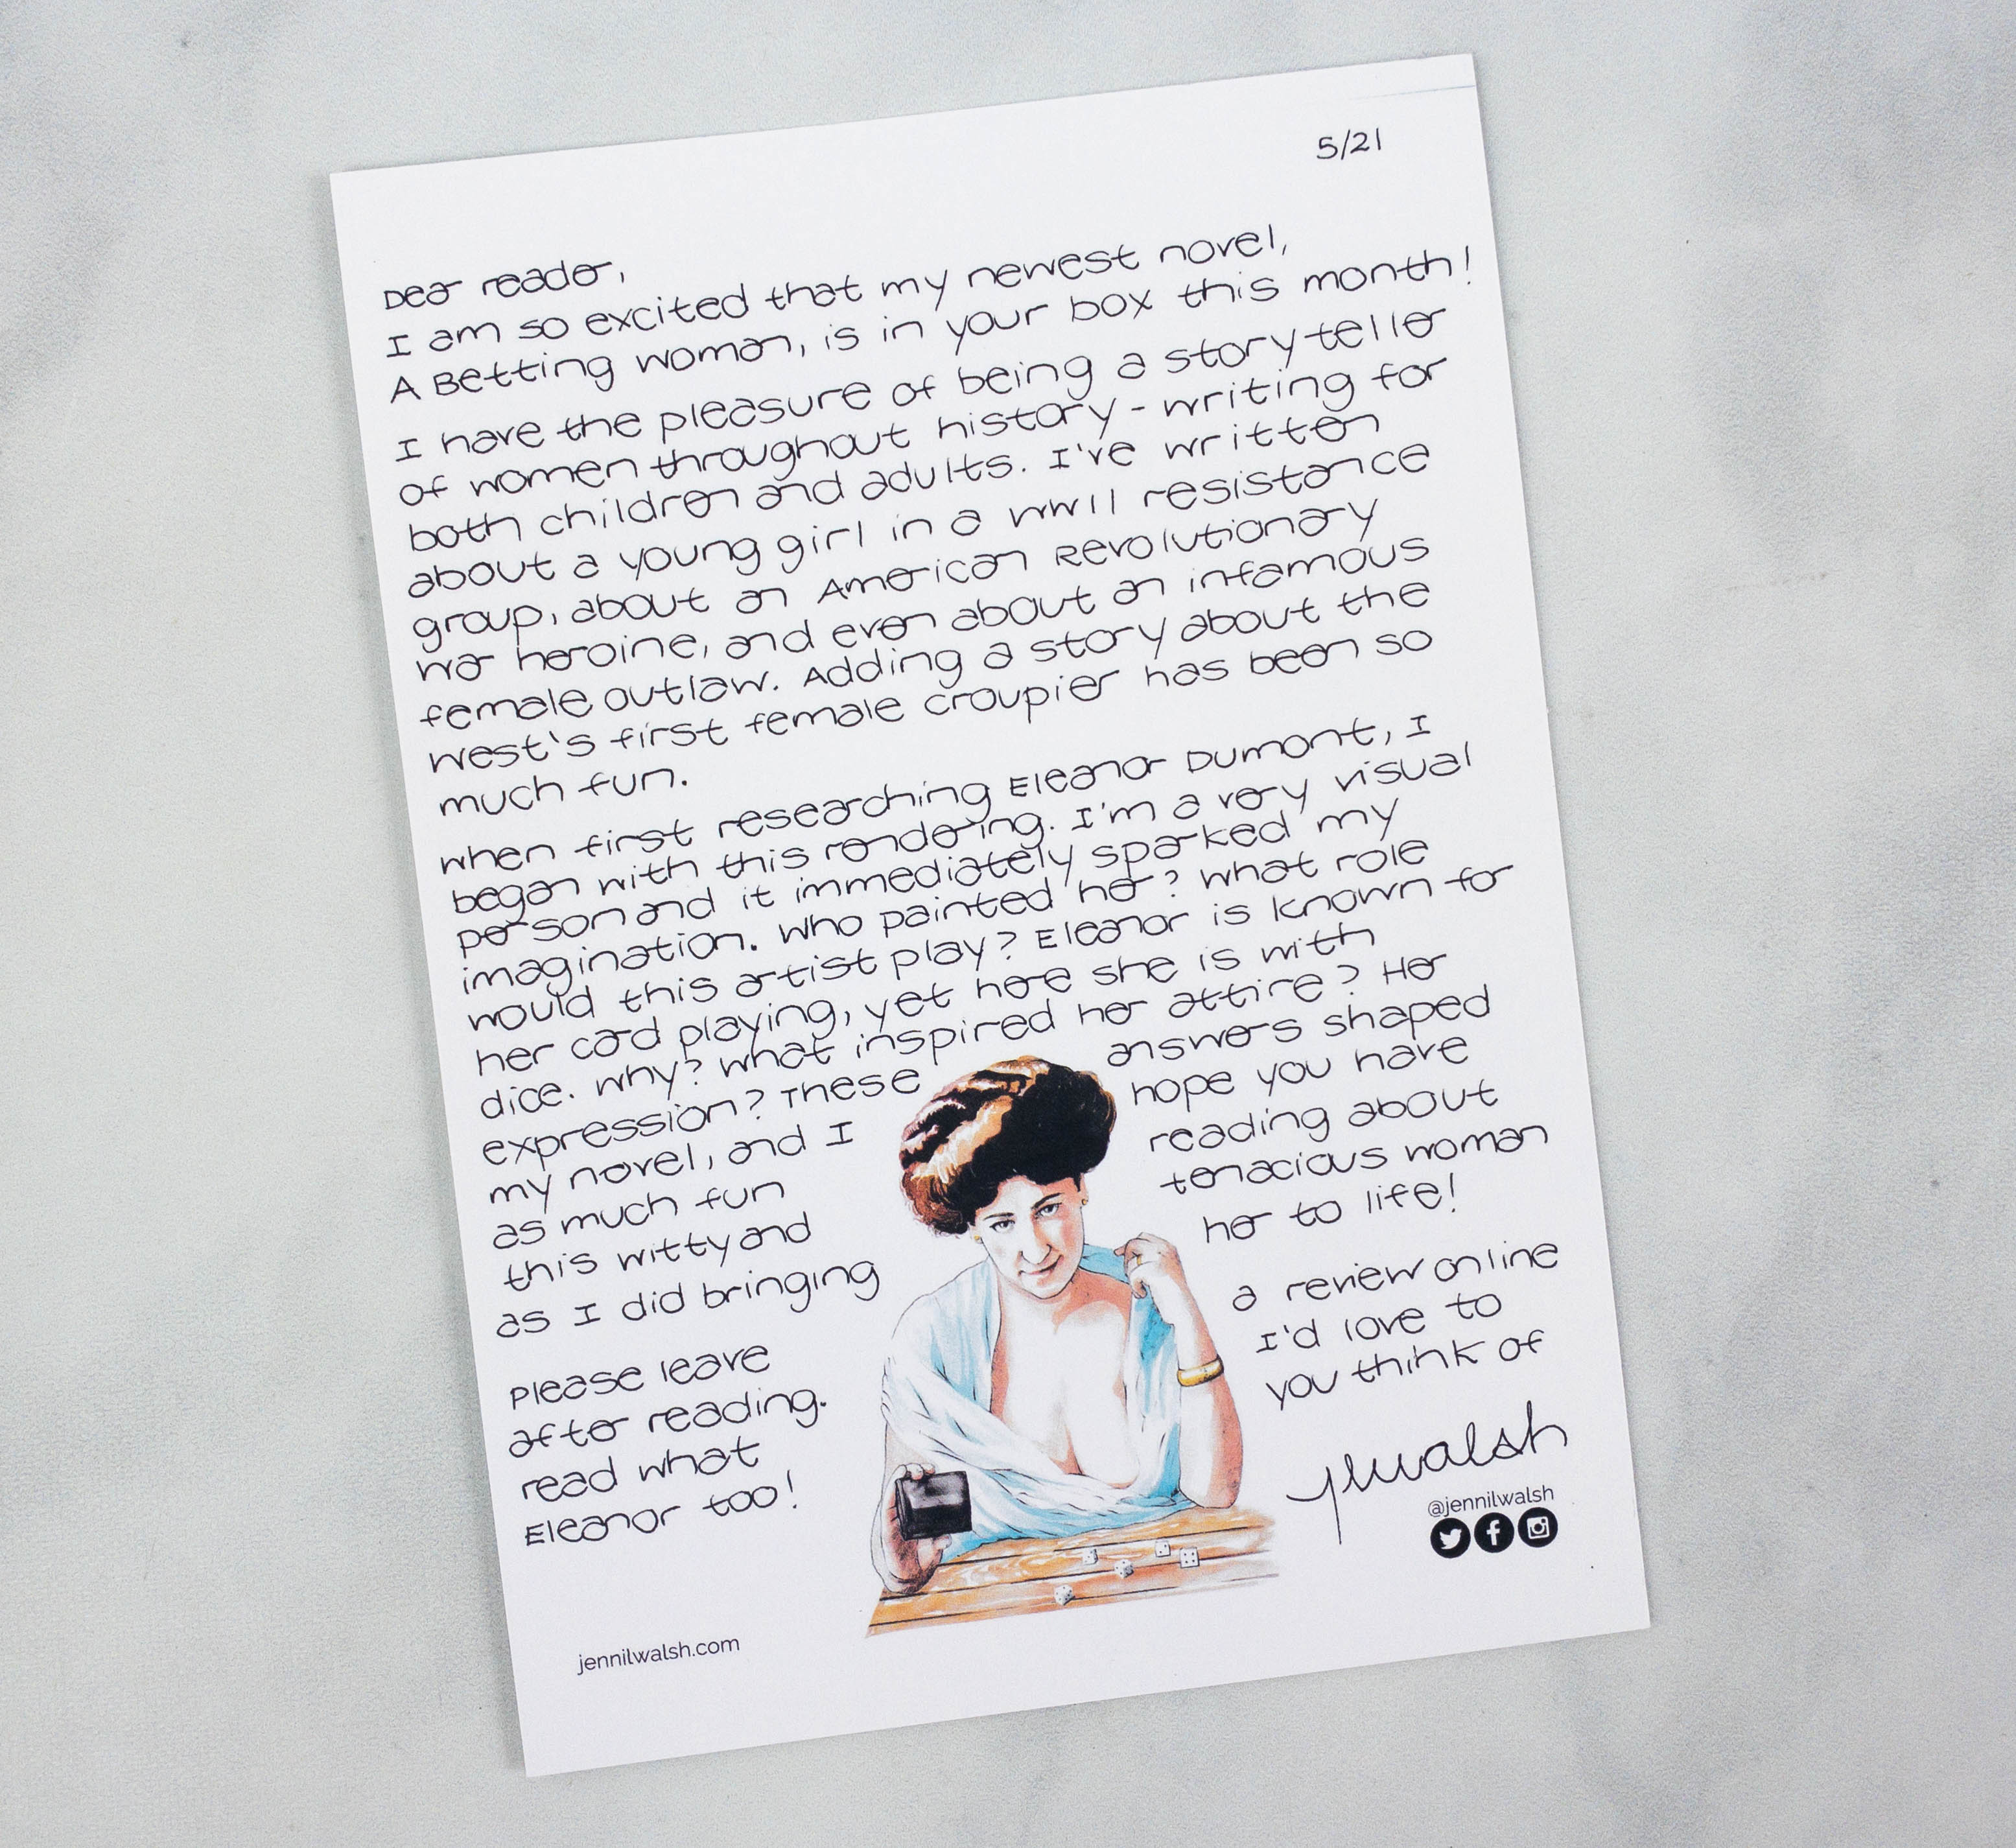 5/21
Dear reader,
I am so excited that my newest novel,
A Betting Woman, is in your box this month!
I have the pleasure of being a storyteller
of women throughout history - writing for
both children and adults. I've written
about a young girl in a WWII resistance
group, about an American Revolutionary
War heroine, and even about an infamous
female outlaw. Adding a story about the
West's first female croupier has been so
much fun.
When first researching Eleanor Dumont, I
began with this rendering. I'm a very visual
person and it immediately sparked my
imagination. Who painted her? What role
would this artist play? Eleanor is known for
her card playing, yet here she is with
dice. Why? What inspired her attire? Her
expression? These answers shaped
my novel, and I hope you have
as much fun reading about
this witty and tenacious woman
as I did bringing her to life!
Please leave a review online
after reading. I'd love to
read what you think of
Eleanor too!
jlwalsh
@jennilwalsh
jennilwalsh.com